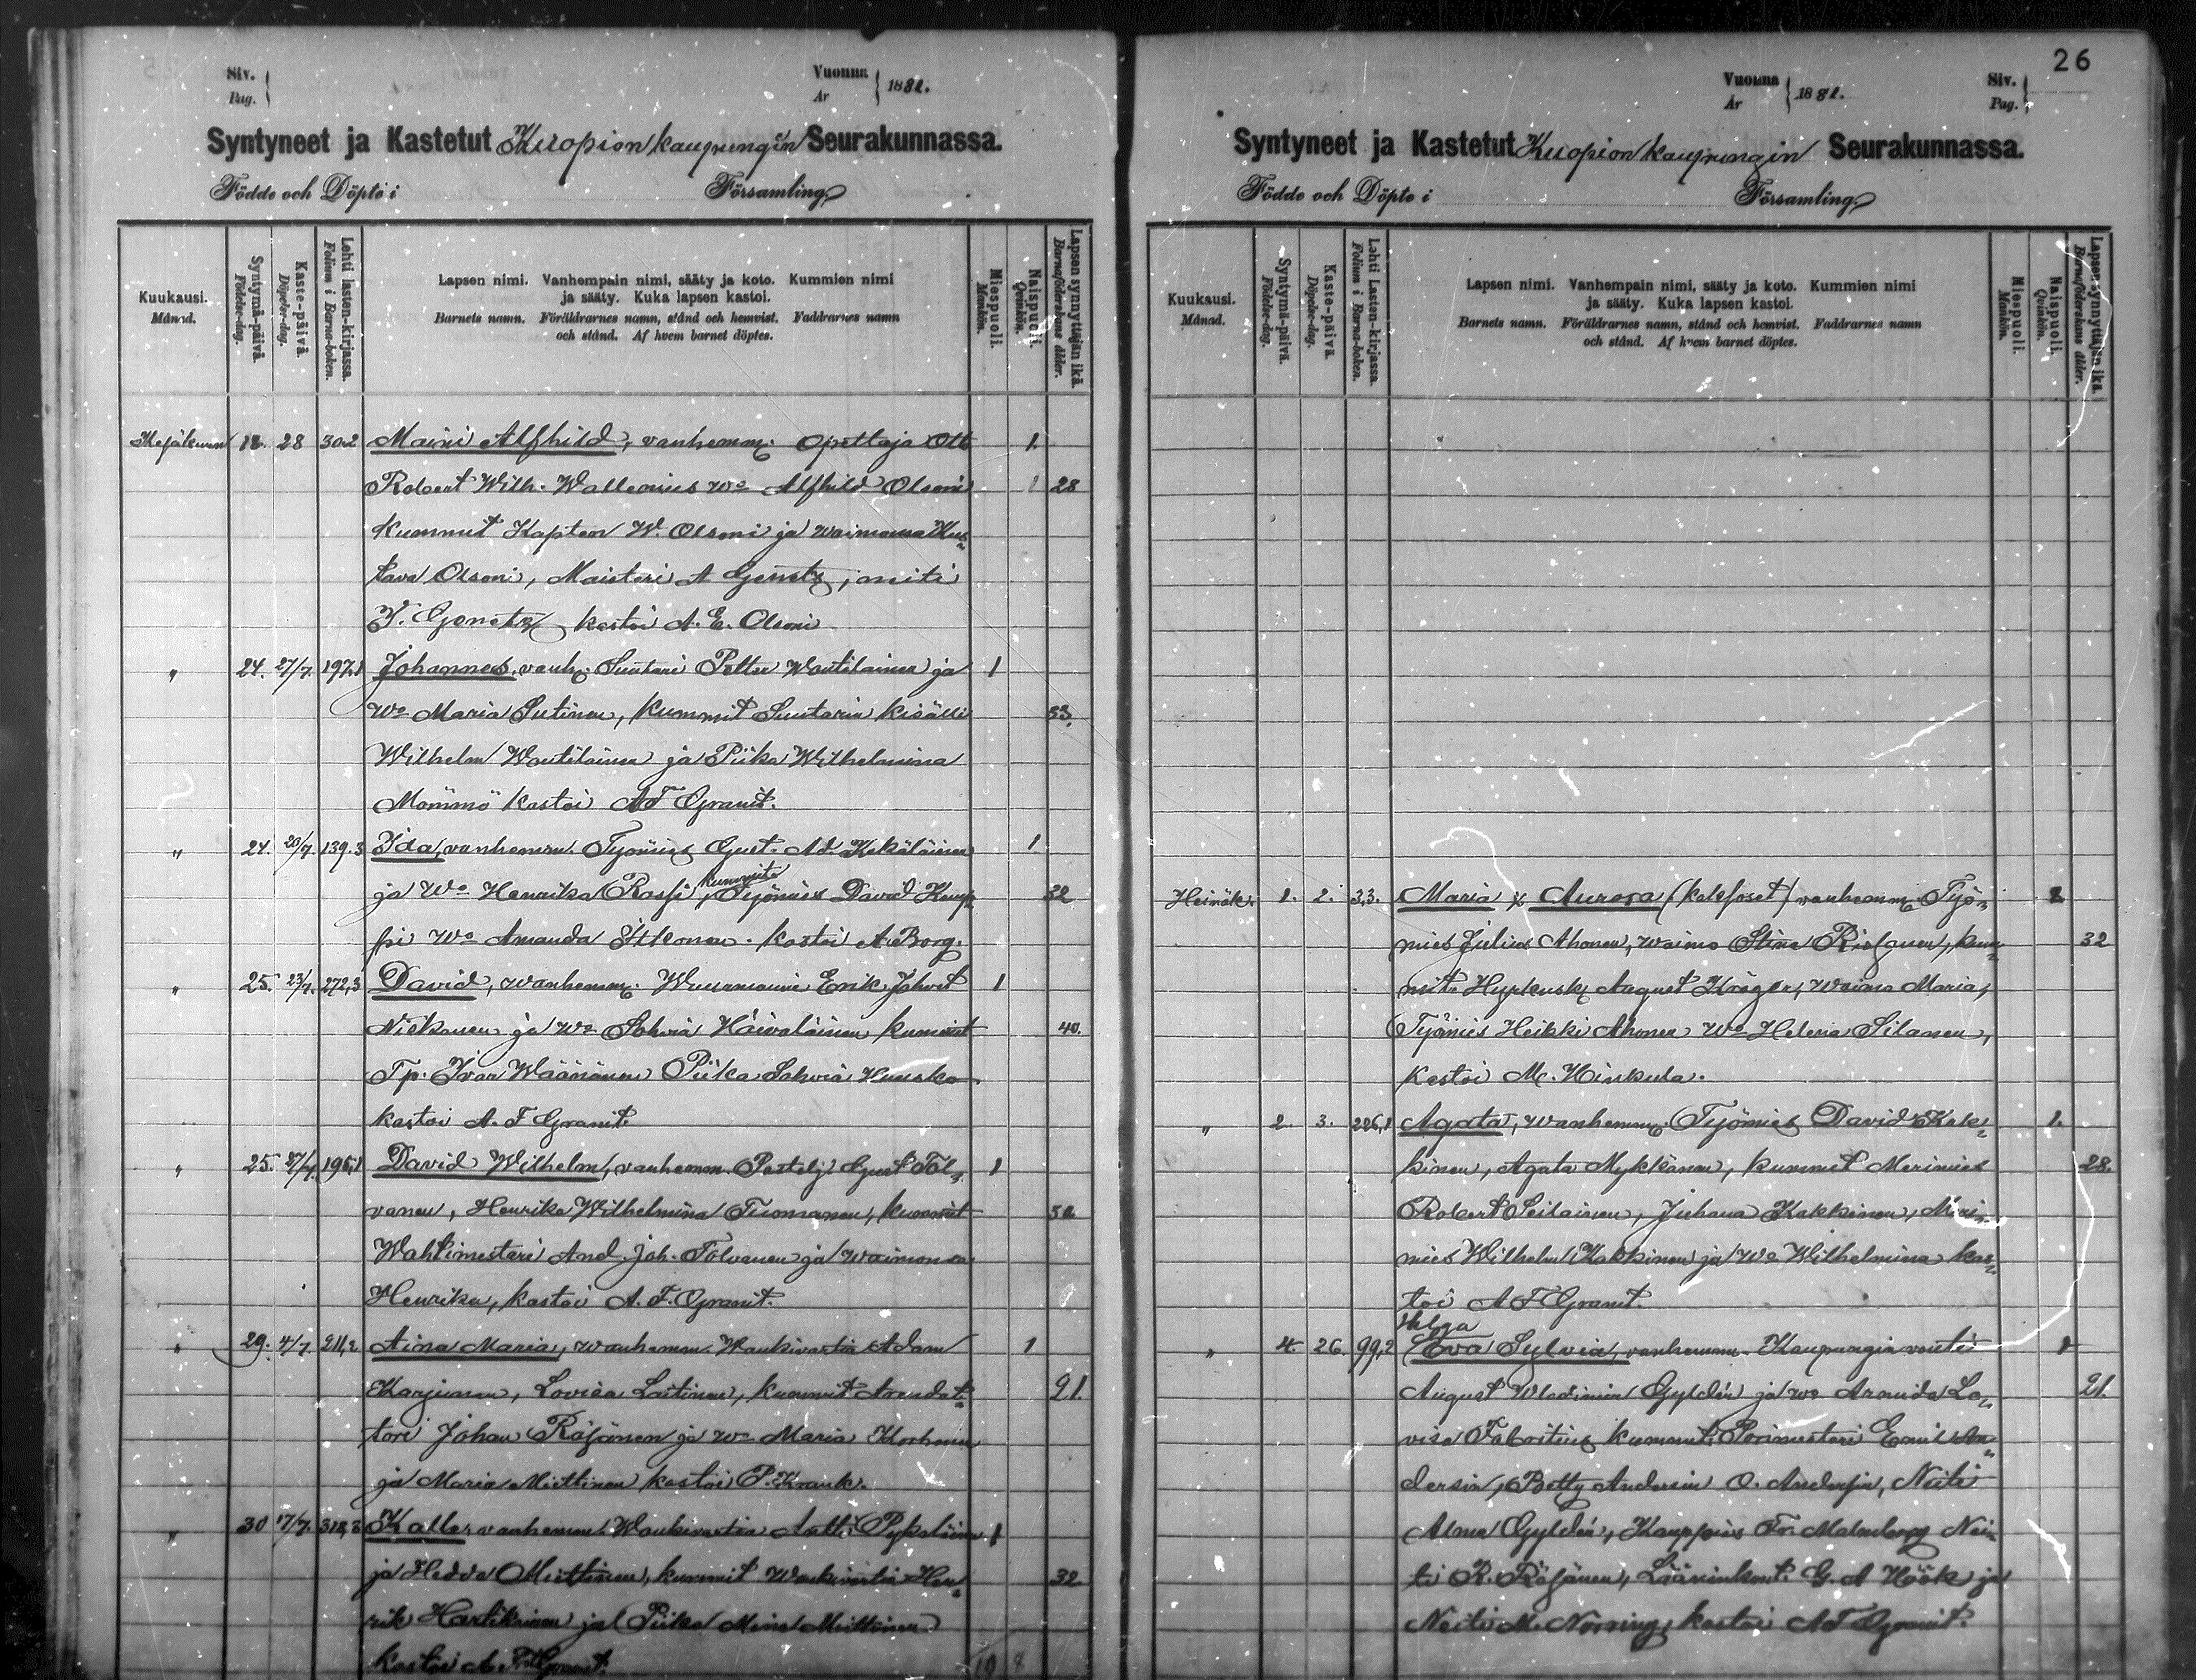 Siv.
Pag.
Vuonna
År
1882.
Syntyneet ja Kastetut Kuopion kaupungin Seurakunnassa.
Födde och Döpte i Församling
Kuukausi.
Månad.
Syntymä-päivä.
Födelse-dag.
Kaste-päivä.
Döpelse-dag.
Lehti lasten-kirjassa.
Folium i Barna-boken.
Lapsen nimi. Vanhempain nimi, sääty ja koto. Kummien nimi
ja sääty. Kuka lapsen kastoi.
Barnets namn. Föräldrarnes namn, stånd och hemvist. Faddrarnes namn
och stånd. Af hvem barnet döptes.
Miespuoli.
Mankön.
Naispuoli.
Qvinkön.
Lapsen synnyttäjän ikä.
Barnaföderskans ålder.
Kesäkuun 12. 28 302 Maini Alfhild, vanhemm. Opettaja Otto 1.
Robert Wilh. Wallenius wo Alfhild Olsoni 28
Kummit Kapten W. Olsoni ja waimonsa Gus
tava Olsoni, Maisteri A Genetz, neiti
T. Genetz kastoi A. E. Olsoni
" 24. 27/7. 197,1 Johannes, vanh. Suutari Petter Woutilainen ja 1
Wo Maria Sutinen, Kummit Suutarin kisälli 33.
Wilhelm Woutilainen ja Piika Wilhelmina
Mömmö kastoi A F Granit.
" 24. 28/7. 139.3 Ida, vanhemm. Työmies Gust. Ad. Kekäläinen 1
ja Wo Henrika Rossi, kummit Työmies David Kaup 32
pi wo Amanda Itkonen. kastoi A. Borg.
" 25. 23/7. 272,3 David, wanhemm. Wuurmanni Erik Johvet 1
Niskanen ja Wo Sohvia Häivaläinen kummit 40.
Tp. Ivar Wäänänen Piika Sohvia Huusko
kastoi A. F Granit.
" 25. 27/7. 195,1 David Wilhelm, vanhemm. Postelj. Gust Tol 1
vanen, Henrika Wilhelmina Tuomanen, kummit
Wahtimestari And. Joh. Tolvanen ja waimonsa
Henrika, kastoi A. F. Granit.
" 29. 4/7. 211,2 Aina Maria, wanhemm. Wankivartia Adam 1
Karjunen, Lovisa Laitinen, kummit Arendat 21.
tori Johan Räsänen ja wo Maria Korhonen
ja Maria Miettinen kastoi P. Krank.
" 30 17/7. 318,3 Kalle, vanhemm. Wankivartia Antti Pykäläinen 1
ja Hedda Miettinen, kummit Wankivartia Hen 32
rik Hartikainen ja Piika Mina Miettinen
kastoi A. F. Granit.
10 8
26
Vuonna
År
1882.
Siv.
Pag.
Syntyneet ja Kastetut Kuopion kaupungin Seurakunnassa.
Födde och Döpte i Församling
Kuukausi.
Månad.
Syntymä-päivä.
Födelse-dag.
Kaste-päivä.
Döpelse-dag.
Lehti Lasten-kirjassa.
Folium i Barna-boken.
Lapsen nimi. Vanhempain nimi, sääty ja koto. Kummien nimi
ja sääty. Kuka lapsen kastoi.
Barnets namn. Föräldrarnes namn, stånd och hemvist. Faddrarnes namn
och stånd. Af hvem barnet döptes.
Miespuoli.
Mankön.
Naispuoli.
Qvinkön.
Lapsen synnyttäjän ikä.
Barnaföderskans ålder.
Heinäk. 1. 2. 3,3. Maria & Aurora (kaksoset) vanhemm. Työ 2
mies Julius Ahonen, waimo Stina Rissanen, kum 32
mit Hyrkusk August Kröger, Waimo Maria,
Työmies Heikki Ahonen Wo Helena Silanen,
kastoi M. Hinkula.
" 2. 3. 226,1 Agata, wanhemm. Työmies David Kak 1.
kinen, Agata Mykkänen, kummit Merimies 28.
Robert Seilainen, Juhana Kakkinen, Meri
mies Wilhelm Kakkinen ja Wo Wilhelmina kas
toi A F Granit.
Helga
" 4. 26. 99,2 Eva Sylvia, vanhemm. Kaupungin vouti 1
August Wladimir Gyldén ja wo Aronida Lo 21.
visa Fabritius kummit Porimestari Emil An
dersin, Betty Andersin O. Andersin, Neiti
Alma Gyldén, Kauppias Fr. Malmberg Nei
ti R. Räsänen, Lääninkont. G. A Höök ja
Neiti M. Norring, kastoi A F Granit.